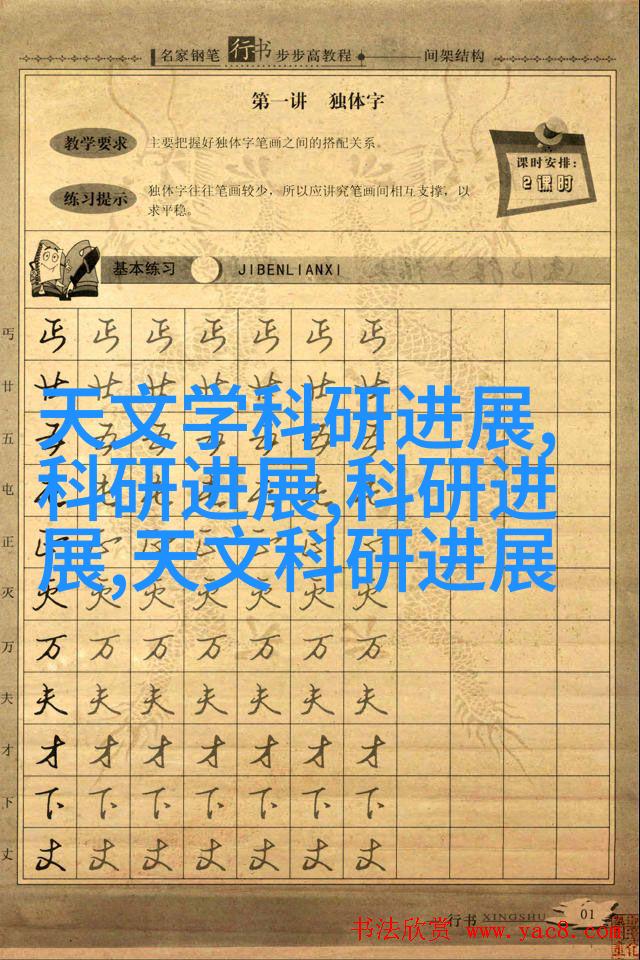 名家钢笔 行书 步步高教程 间架结构
第一讲 独体字
教学要求 主要把握好独体字笔画之间的搭配关系。
练习提示 独体字往往笔画较少，所以应讲究笔画间相互支撑，以
求平稳。
课时安排：
2课时
基本练习 JIBENLIANXI
丐 丐 丐 丐 丐 丐 丐 丐
廿 廿 廿 廿 廿 廿 廿 廿
天文学科研进展,
科研进展,科研进
展,天文科研进展
五 五 五 五 五 五 五 五
屯
正
灭 灭 灭 灭 灭 灭 灭 灭
万 万 万 万 万 万 万 万
夫 夫 夫 夫 夫 夫 夫 夫
才 才 才 才 才 才 才 才
下 下 下 下 下 下 下 下
丈 丈 丈 丈 丈 丈 丈 丈
行书 XINGSHU 01
书法欣赏 www.yac8.com